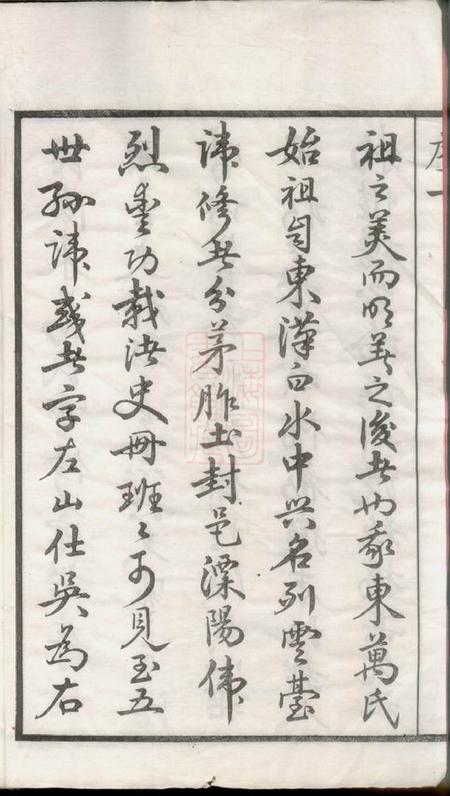 序一
祖之美而明著之後者也我東萬氏
始祖自東漢白水中興名列雲臺
諱修者分茅胙土封邑溧陽偉
烈豐功載諸史冊班〻可見至五
世孫諱彧者字左山仕吳為右